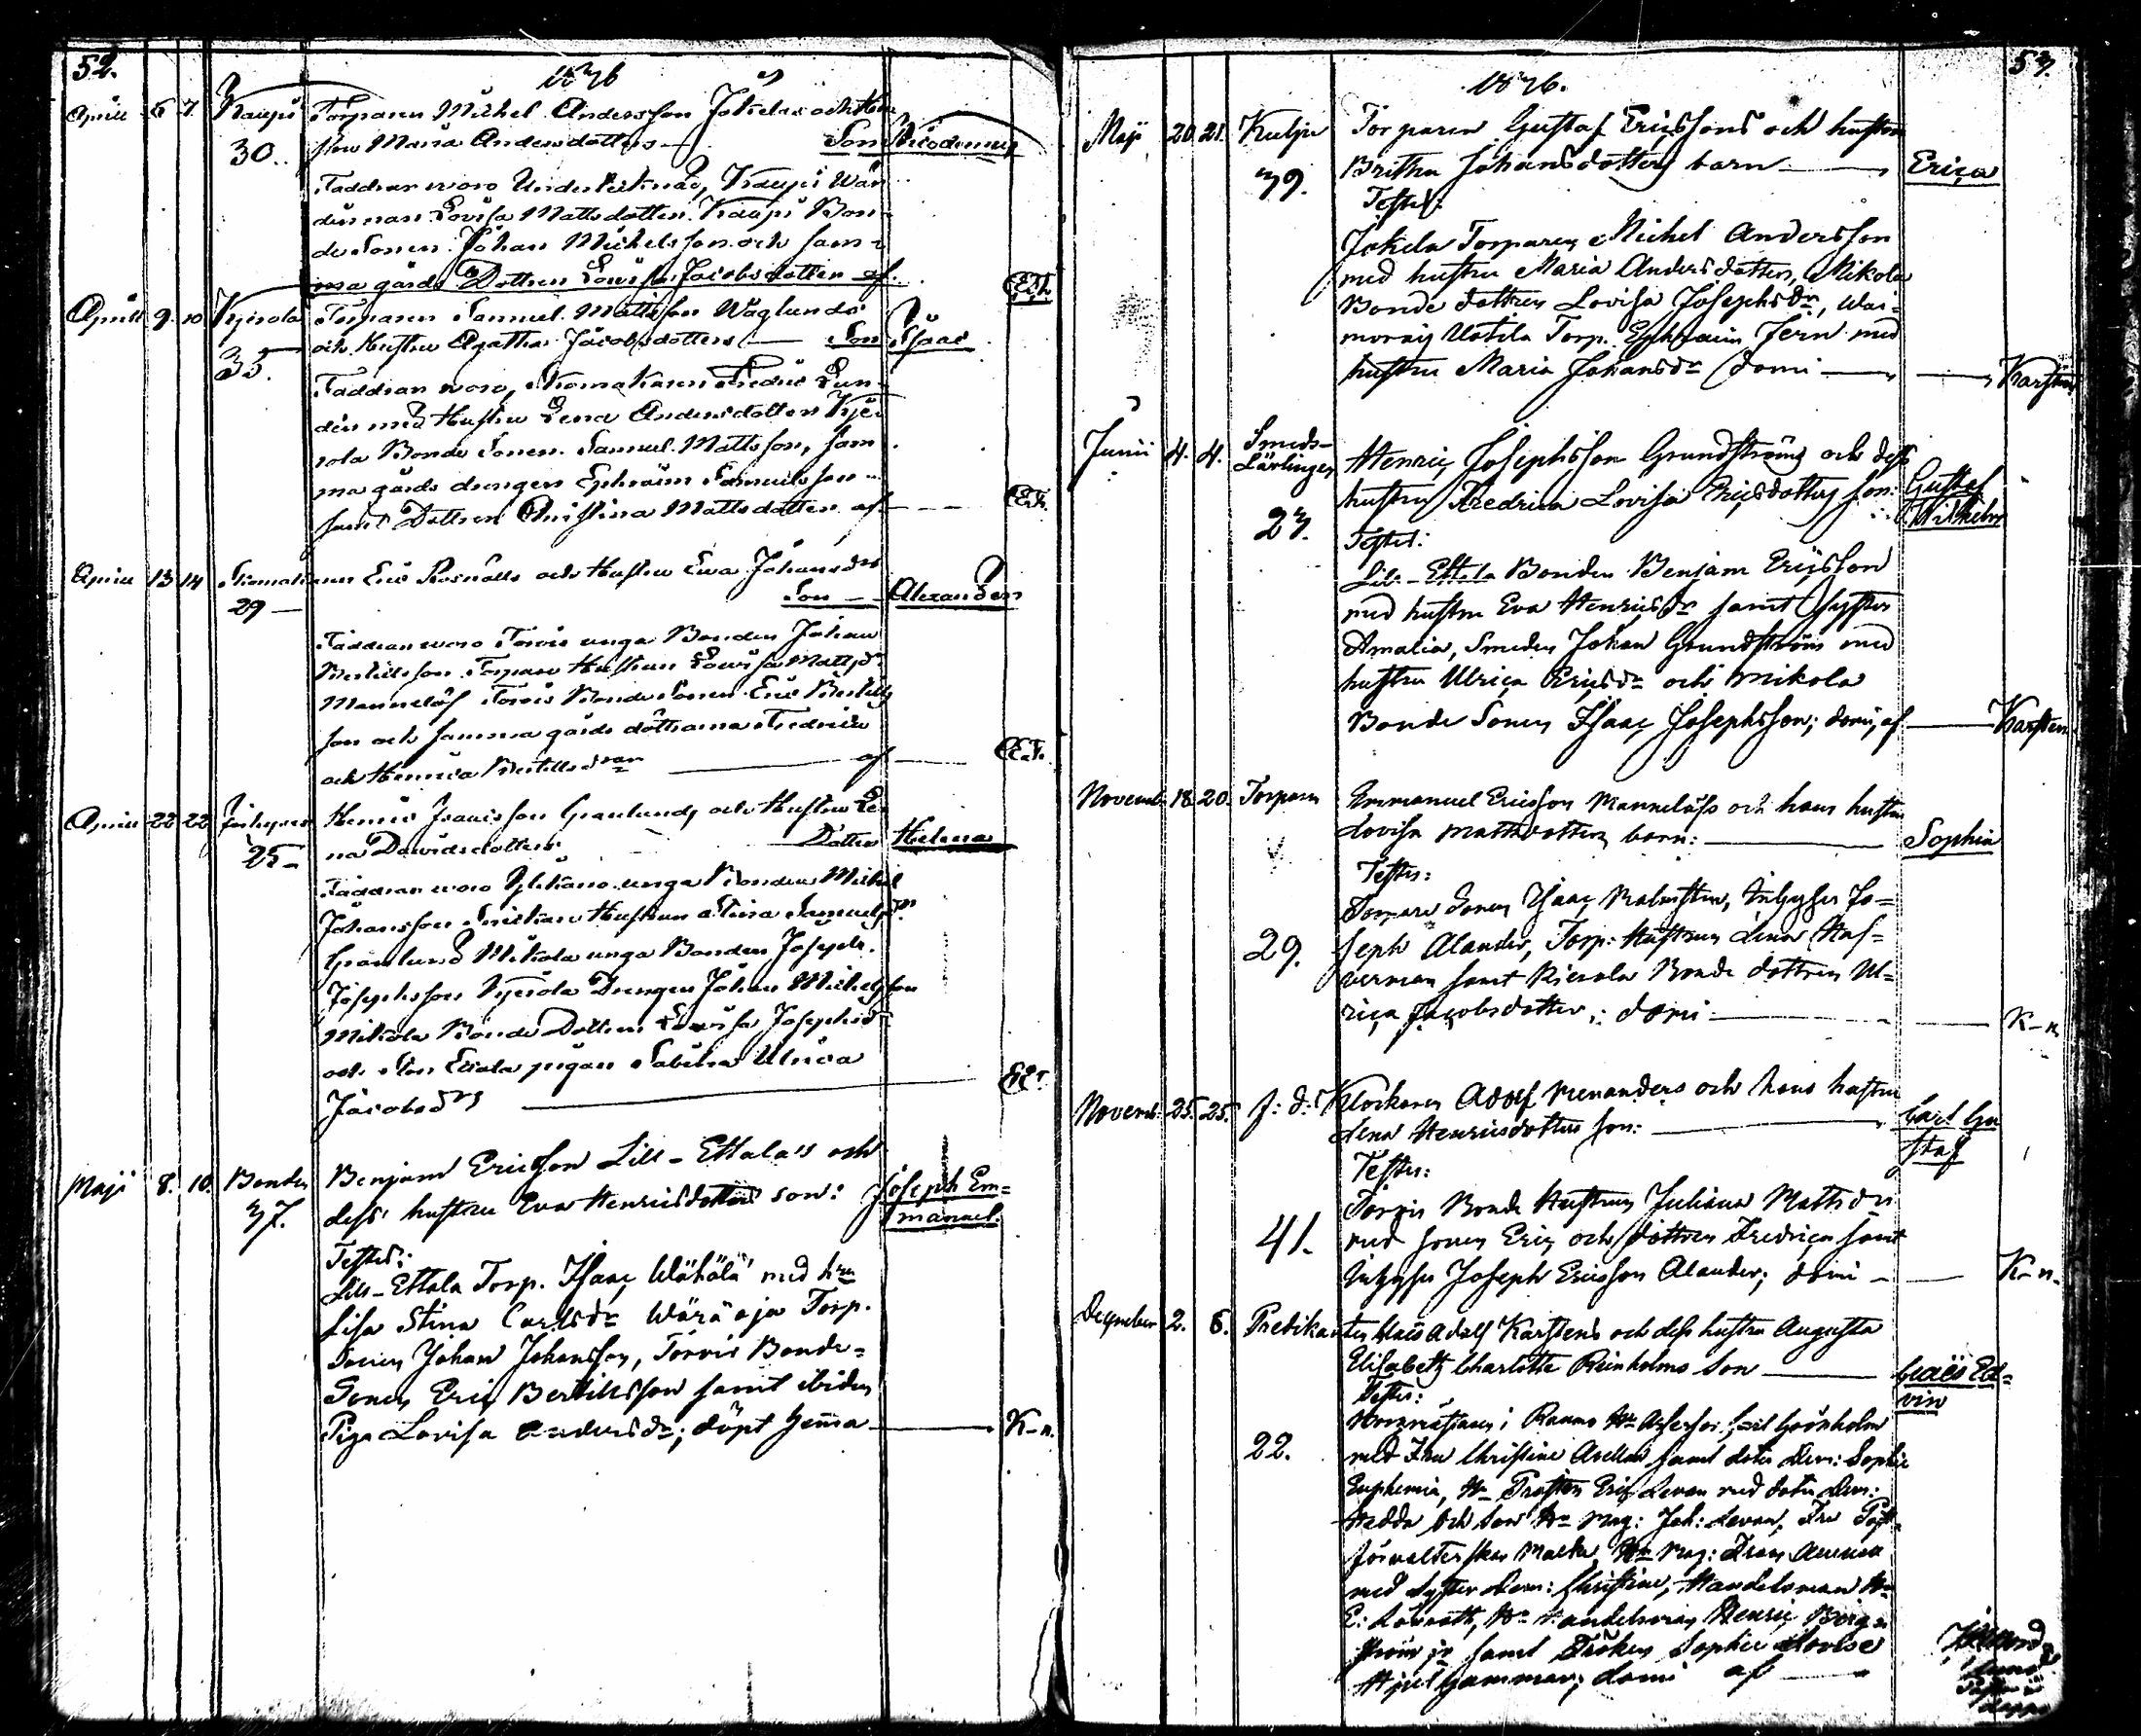 52.
1836
April 6 7 Kaupi Torparen Michel Andersson Jokelas och Hu-
30. stru Maria Andersdotters Son Nicodemus
Faddrar woro Undertecknad, Kaupi Wär-
dinnan Lovisa Mattsdotter. Kaupi Bon-
de Sonen Johan Michelsson och sam-
ma gårds Dottren Lovisa Jacobsdotter af
April 9. 10 Torparen Samuel Mattsson Wäglunds
och Hustru Agatha Jacobsdotters Son Isaac
35.
Faddrar woro, Skomakaren Fredric Lun-
den med Hustru Lena Andersdotter
Bonde Sonen Samuel Mattsson, sam-
ma gårds drengen Ephraim Samuelsson
samt Dottren Christina Mattsdotter af
April 13 14 Skomakaren Eric och Hustru Eva Johansdrs
29 Son Alexander
Faddrar woro Torvis unga Bonden Johan
Bertillsson Torpare Hustrun Lovisa Mattsdr
Mannelöf Torvis Bonde Sonen Eric Bertills
son och samma gårds döttrarna Fredrica
och Henrica Bertillsdrar af
April 22 22 Henric Granlunds och Hustru Le-
25 na Davidsdotters Dotter Helena
Faddrar woro unga Bonden Michel
Johansson Hustrun Stina Samuelsdr
Granlund Mikola unga Bonden Joseph
Josephsson Drengen Johan Michelsson
Mikola Bonde Dottren Lovisa Josephsdr
och pigan Sabina Ulrica
Jacobsdr
Maji 8. 10. Bonden Benjam Ericsson Lill-Ettala's och
37. dess hustru Eva Henricsdotters son: Joseph Em=
manuel.
Testes:
Lill-Ettala Torp. Isaac Wähälä med hru
Lisa Stina Carlsdr Wäräoja Torp.
Sonen Johan Johansson, Torvis Bonde=
Sonen Eric Bertillsson samt ibidem
Piga Lovisa Andersdr; döpt hemma K-n.
53.
1836.
Maji 20. 21. Kulju Torparen Gustaf Ericssons och hustru
39. Britha Johansdotters barn Erica
Testes:
Jokela Torparen Michel Andersson
med hustru Maria Andersdotter, Mikola
Bonde dottren Lovisa Josephsdr, Wai-
Uotila Torp. Ephraim Jern med
hustru Maria Johansdr domi Karsten
Junii 4. 4. Smeds-
Lärlingen Henric Josephsson Grundströms och dess
hustru Fredrica Lovisa Ericsdotters son: Gustaf
27. Wilhelm
Testes:
Lill-Ettala Bonden Benjam Ericsson
med hustru Eva Henricsdr samt syster
Amalia, Smeden Johan Grundström med
hustru Ulrica Ericsdr och Mikola
Bonde Sonen Isaac Josephsson; domi, af Karsten
Novemb. 18. 20. Torparen Emmanuel Ericsson Mannelöfs och hans hustru
Lovisa Mattsdotters barn: Sophia
Testes:
Torpare Sonen Isaac Malmsten, Inhyses Jo=
29. seph Alander, Torp: Hustrun Lena Haf=
verman samt Bonde dottren Ul=
rica Jacobsdotter,: domi K-n
Novemb. 25. 25. f: d: Klockaren Adolf Menanders och hans hustru
Lena Henricsdotters son: Carl Gu
staf
Testes:
Torvis Bonde Hustrun Juliana Mattsdr
41. med sonen Eric och dottren Fredrica samt
Inhyses Joseph Ericsson Alander; domi K-n-
December 2. 6. Predikanten Claës Adolf Karstens och dess hustru Augusta
Elisabeth Charlotta Reinholms Son Claës Ed=
vin
Testes:
i Raumo Hr Assessor Carl Grönholm
22. med Fru Christine Avellan samt doter Dem: Sophie
Euphemia, Hr Prosten Eric Levan med doter Dem:
Hedda och son Hr Mag: Joh: Levan, Fru Post-
förvalterskan Hr Mag: Frans
med syster Dem: Christine, Handelsman Hr
E: Hr Handelsman Henric Berg-
ström jr samt Fröken Sophie Lovise
domi af